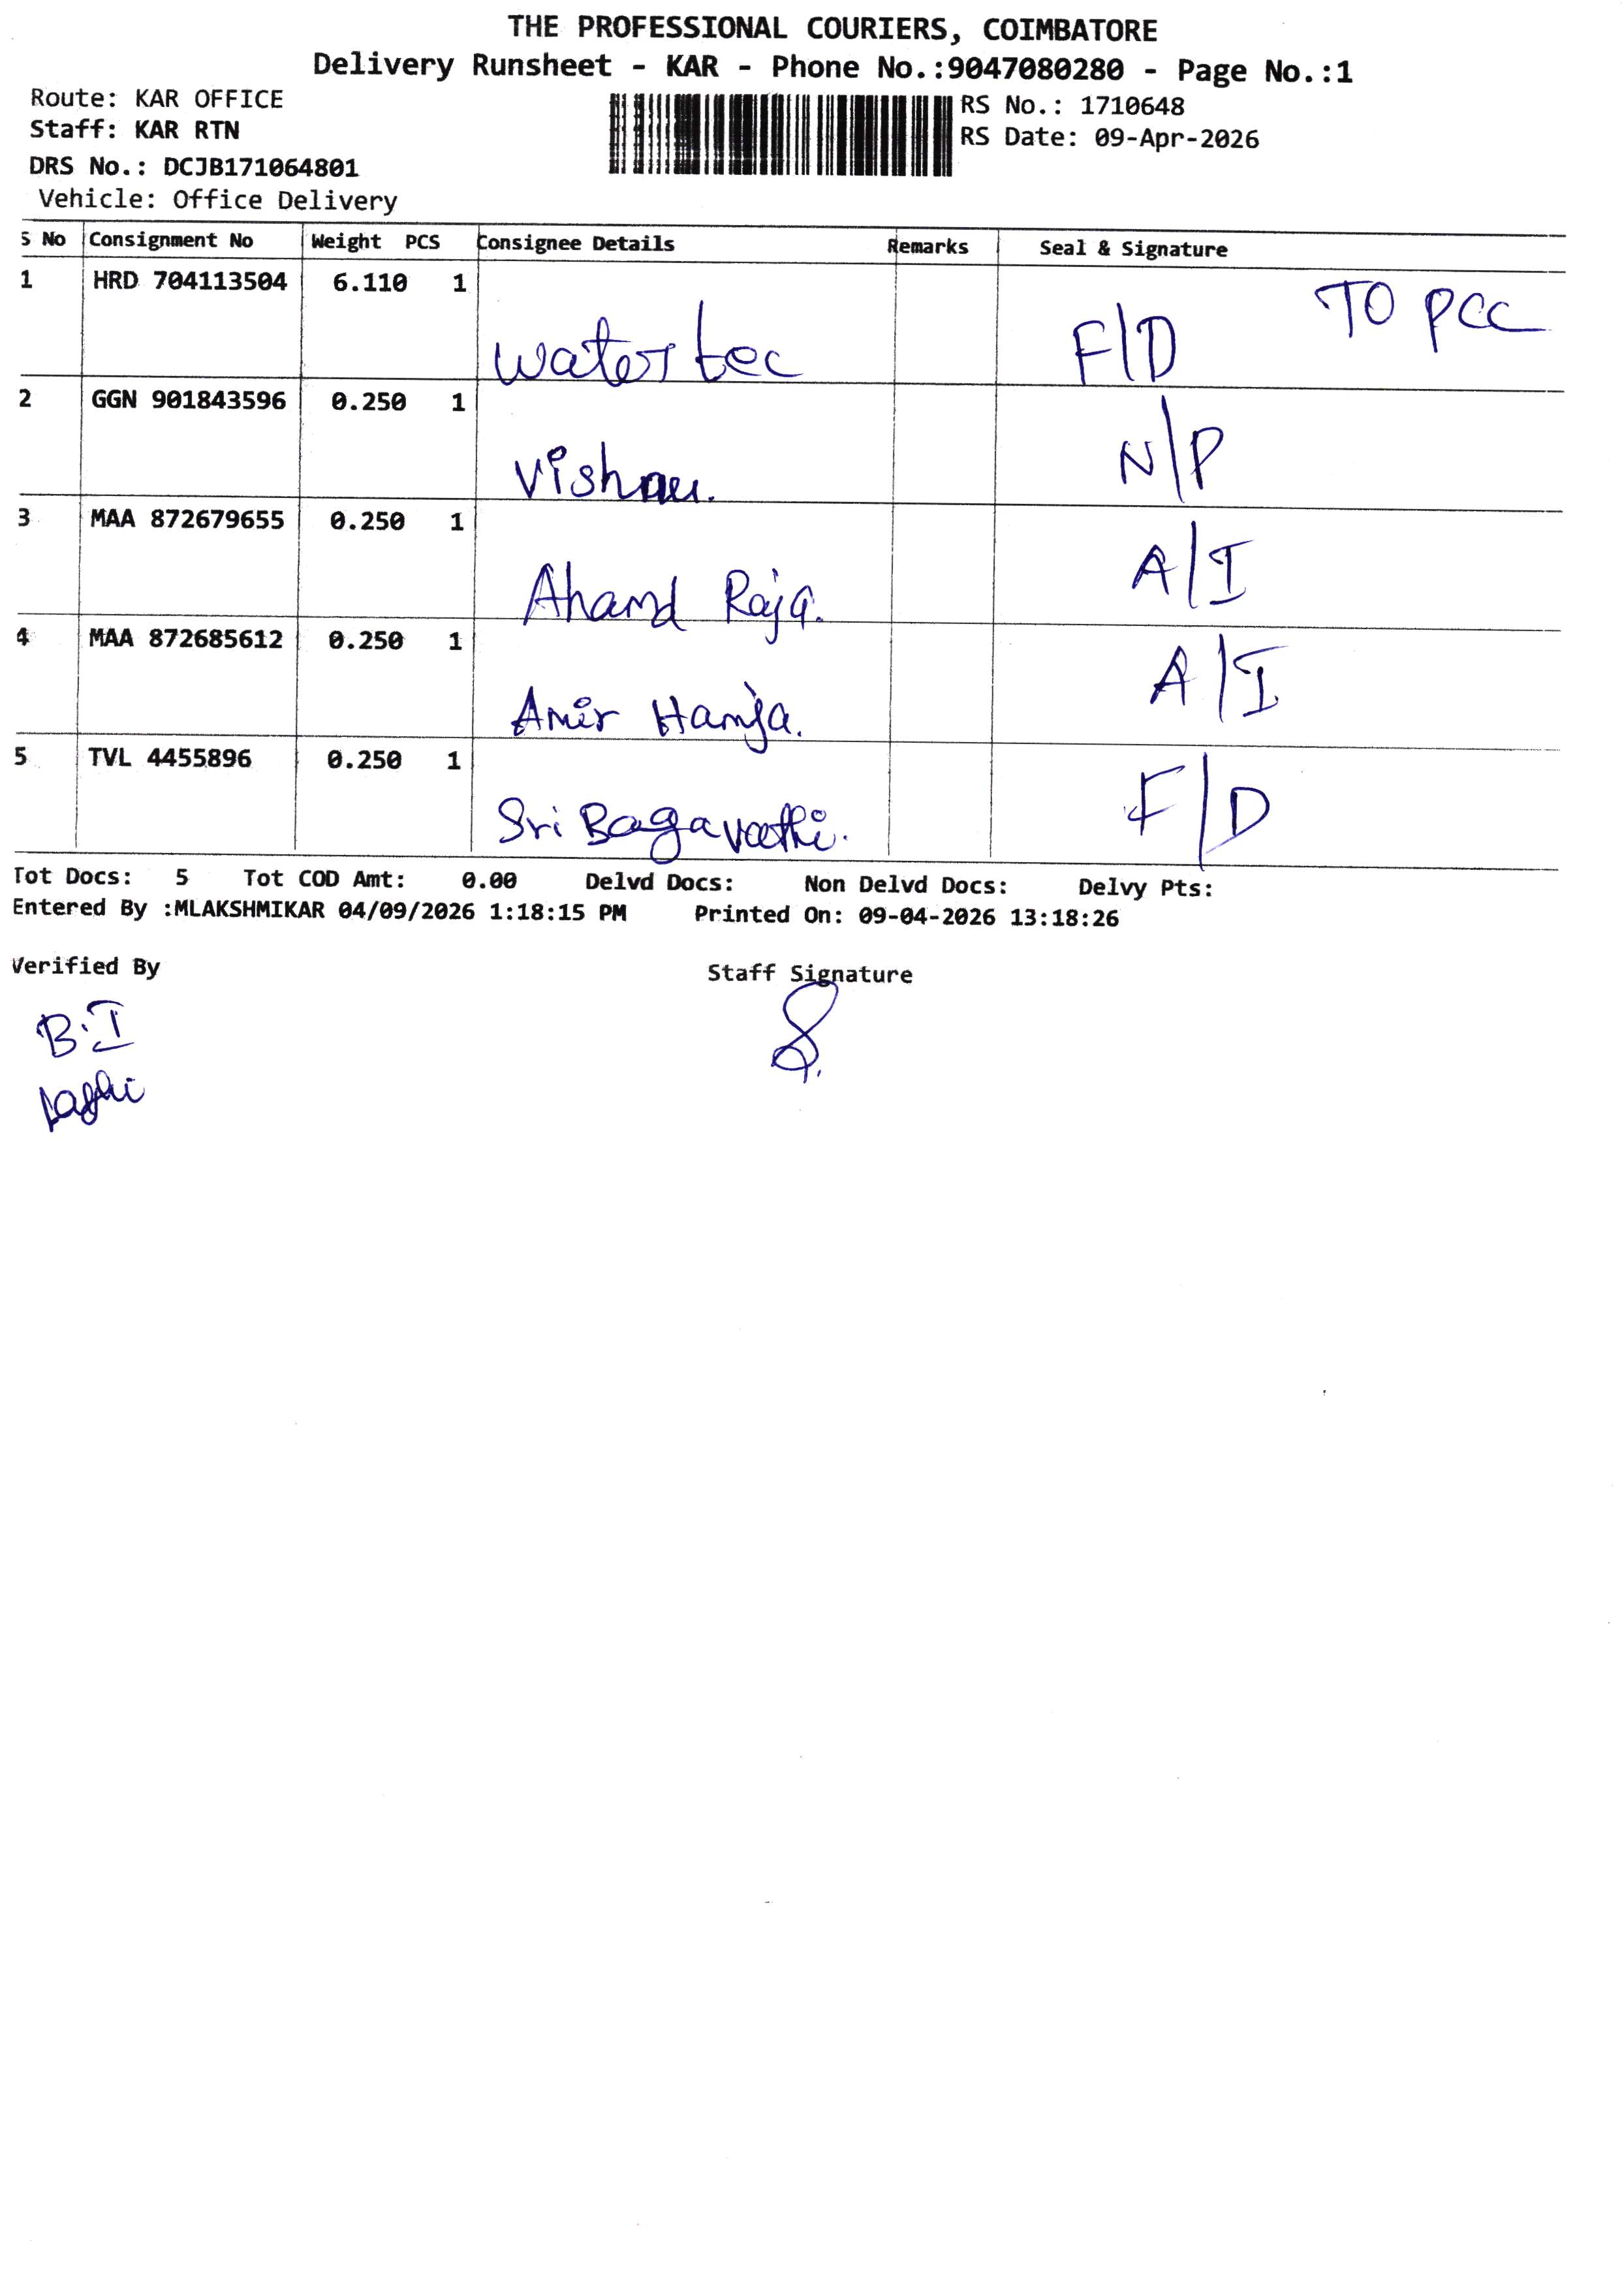 THE PROFESSIONAL COURIERS, COIMBATORE
Delivery Runsheet - KAR - Phone No.:9047080280 - Page No.:1
Route: KAR OFFICE
RS No.: 1710648
Staff: KAR RTN
RS Date: 09-Apr-2026
DRS No.: DCJB171064801
Vehicle: Office Delivery
S No Consignment No Weight PCS Consignee Details Remarks Seal & Signature
1 HRD 704113504 6.110 1 water tec F/D TO PCC
2 GGN 901843596 0.250 1 Vishnu. N/P
3 MAA 872679655 0.250 1 Ahand Raja. A/I
4 MAA 872685612 0.250 1 Amir Hamja. A/I
5 TVL 4455896 0.250 1 Sri Bagavathi. F/D
Tot Docs: 5 Tot COD Amt: 0.00 Delvd Docs: Non Delvd Docs: Delvy Pts:
Entered By :MLAKSHMIKAR 04/09/2026 1:18:15 PM Printed On: 09-04-2026 13:18:26
Verified By Staff Signature
B.I